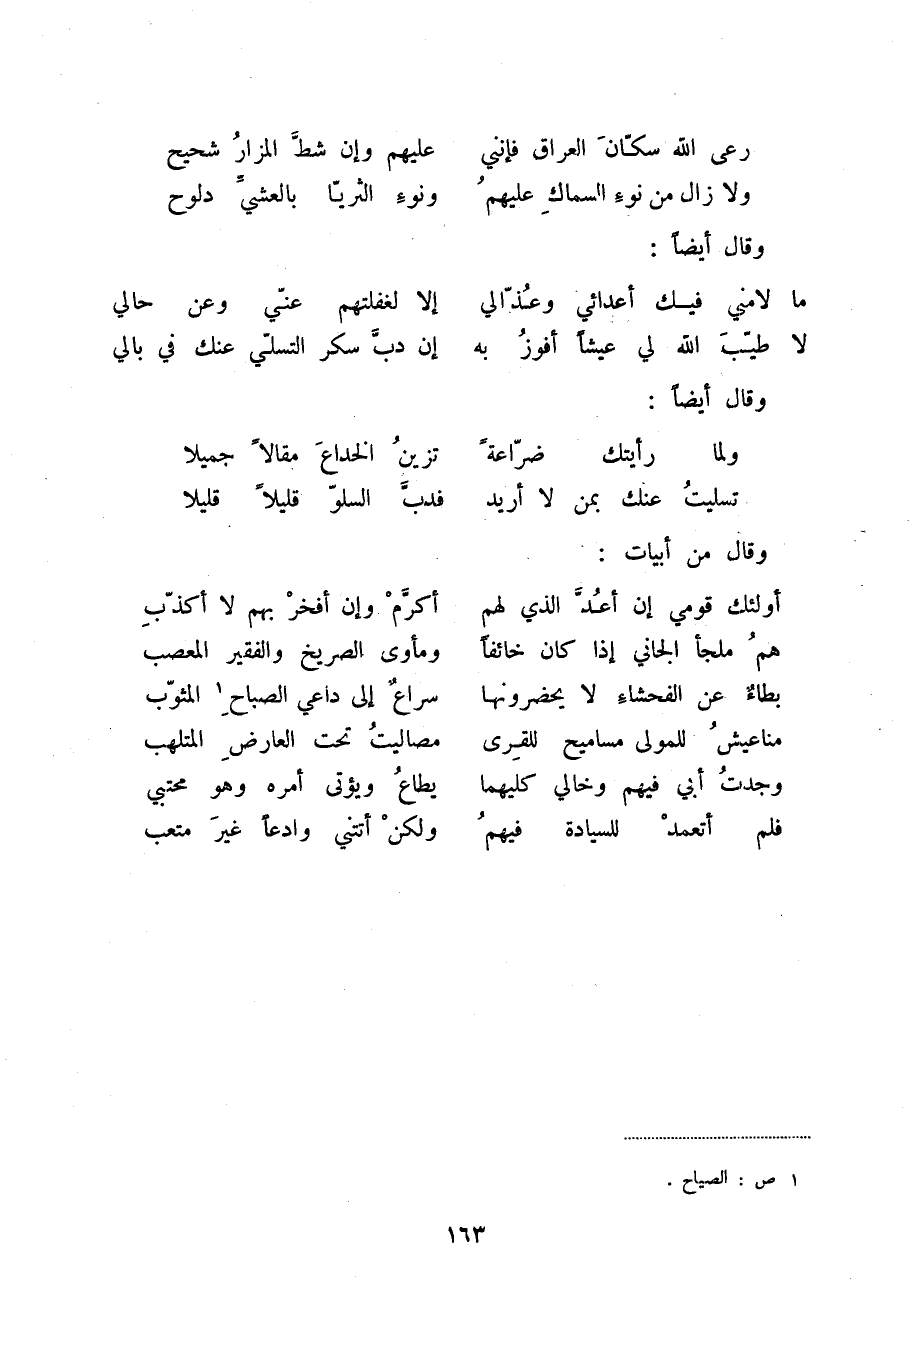 رعى الله سكّانَ العراق فإنني عليهم وإن شطَّ المزارُ شحيح
ولا زال من نوء السماكِ عليهمُ ونوءِ الثريّا بالعشيِّ دلوح
وقال أيضاً :
ما لامني فيك أعدائي وعُذّالي إلا لغفلتهم عنّي وعن حالي
لا طيّبَ الله لي عيشاً أفوزُ به إن دبَّ سكر التسلّي عنك في بالي
وقال أيضاً :
ولما رأيتك ضرّاعةً تزينُ الخداعَ مقالاً جميلا
تسليتُ عنك بمن لا أريد فدبَّ السلوّ قليلاً قليلا
وقال من أبيات :
أولئك قومي إن أعُدَّ الذي لهم أكرَّمْ وإن أفخرْ بهم لا أكذّبِ
همُ ملجأ الجاني إذا كان خائفاً ومأوى الصريخ والفقير المعصب
بطاءٌ عن الفحشاء لا يحضرونها سراعٌ إلى داعي الصباحِ ١ المثوّب
مناعيشُ للمولى مساميح للقِرى مصاليتُ تحت العارضِ المتلهب
وجدتُ أبي فيهم وخالي كليهما يطاعُ ويؤتى أمره وهو محتبي
فلم أتعمدْ للسيادة فيهمُ ولكنْ أتتني وادعاً غيرَ متعب
١ ص : الصياح .
١٦٣